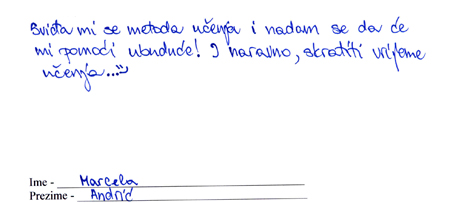 Sviđa mi se metoda učenja i nadam se da će
mi pomoći ubuduće! I naravno, skratiti vrijeme
učenja...
Ime - Marcela
Prezime - Andrić